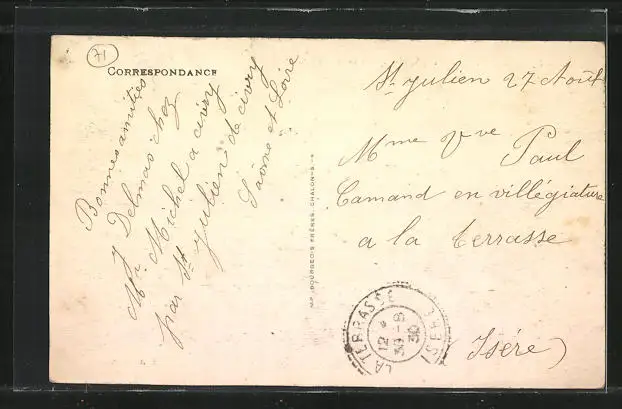 71
CORRESPONDANCE
Bonnes amities
J Delmas chez
Mr Michel a civry
par St Julien de civry
Saône et Loire
IMP. BOURGEOIS FRÈRES, CHALON-S-S
St Julien 27 Août
Mme Vve Paul
Camand en villégiature
a la terrasse
Isère)
LA TERRASSE
ISERE
12 *
30 - 8
30